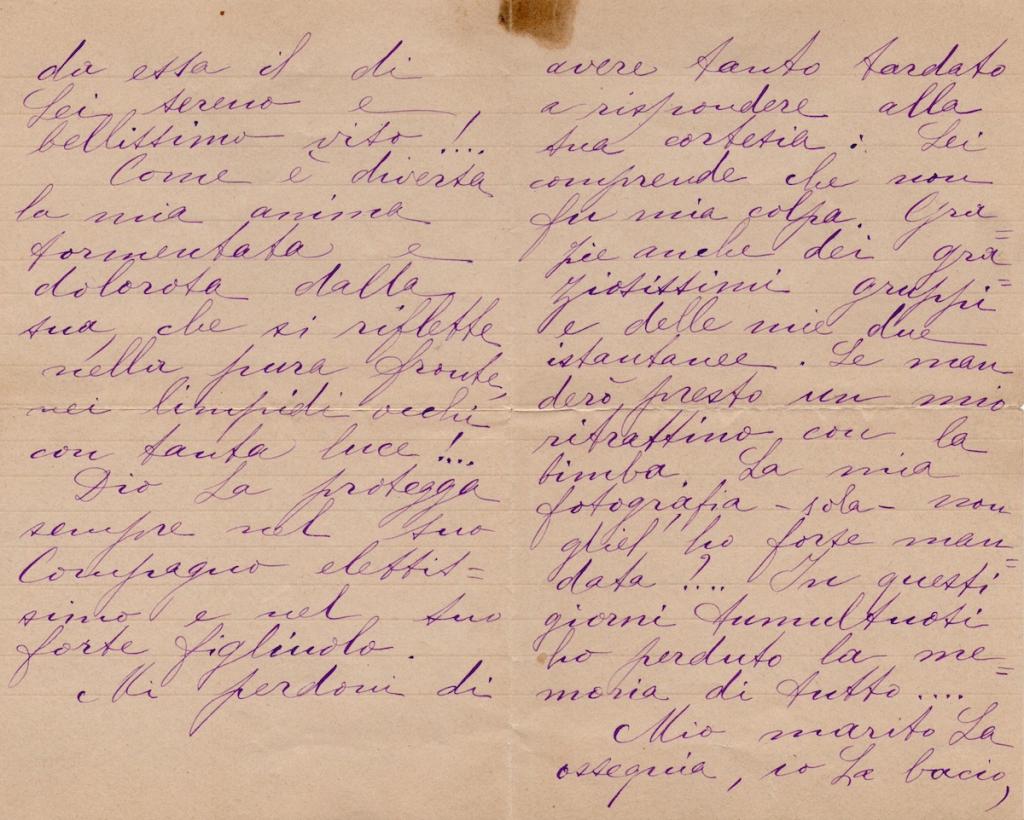 da essa il di
Lei sereno e
bellissimo viso !....
Come è diversa
la mia anima
tormentata e
dolorosa dalla
sua, che si riflette
nella pura fronte,
nei limpidi occhi
con tanta luce !....
Dio La protegga
sempre nel suo
Compagno elettis=
simo e nel suo
forte figliuolo.
Mi perdoni di
avere tanto tardato
a rispondere alla
sua cortesia: Lei
comprende che non
fu mia colpa. Gra=
zie anche dei gra=
ziosissimi gruppi
e delle mie due
istantanee. Le man
derò presto un mio
ritrattino con la
bimba. La mia
fotografia - sola - non
gliel' ho forse man=
data ?.... In questi
giorni tumultuosi
ho perduto la me=
moria di tutto....
Mio marito La
ossequia, io La bacio,